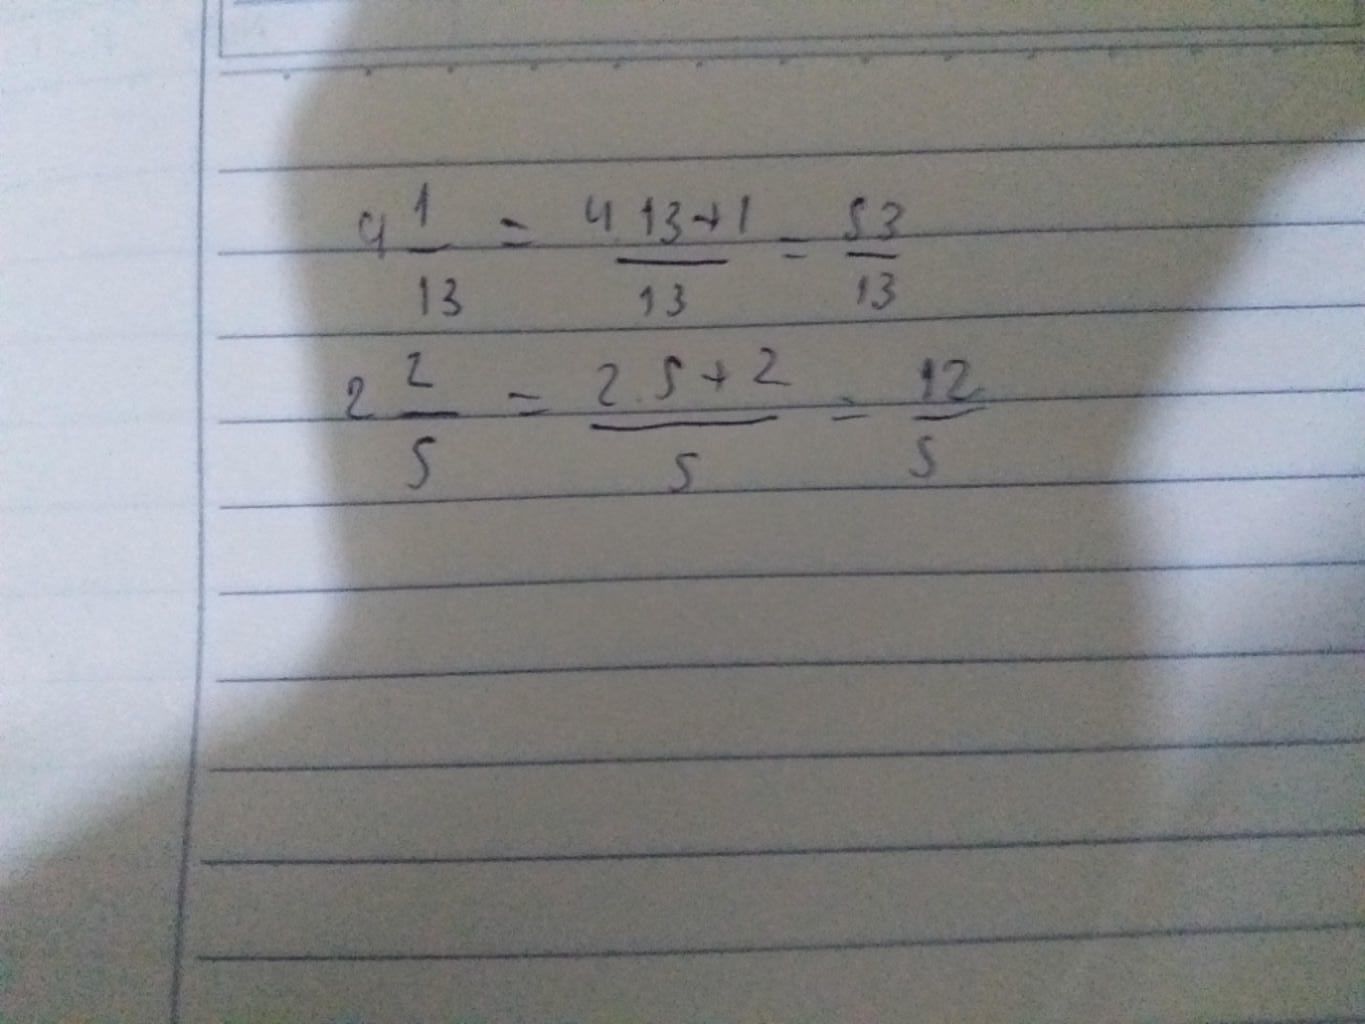 4 1/13 = 4.13+1/13 = 53/13
2 2/5 = 2.5+2/5 = 12/5